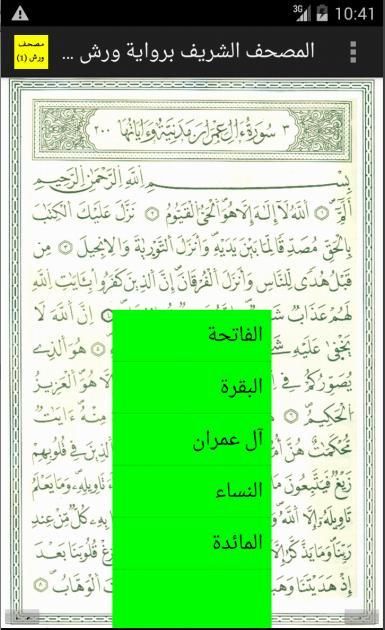 3G 10:41
مصحف
ورش (1)
المصحف الشريف برواية ورش ...
٣ سُورَةُ ءَالِ عِمْرَانَ مَدَنِيَّةٌ وَءَايَاتُهَا ٢٠٠
بِسْمِ اللَّهِ الرَّحْمَٰنِ الرَّحِيمِ
أَلَٓمِّٓ اللَّهُ لَآ إِلَٰهَ إِلَّا هُوَ الْحَيُّ الْقَيُّومُ نَزَّلَ عَلَيْكَ الْكِتَٰبَ
بِالْحَقِّ مُصَدِّقاً لِّمَا بَيْنَ يَدَيْهِ وَأَنزَلَ التَّوْرَىٰةَ وَالِانجِيلَ مِن
قَبْلُ هُدىً لِّلنَّاسِ وَأَنزَلَ الْفُرْقَانَ إِنَّ الذِينَ كَفَرُوا بِـَٔايَٰتِ اللَّهِ
لَهُمْ عَذَابٌ إِنَّ اللَّهَ لَا
يَخْفَىٰ عَلَيْهِ هُوَ الذِے
يُصَوِّرُكُمْ فِے إِلَّا هُوَ الْعَزِيزُ
الْحَكِيمُ مِنْهُ ءَايَٰتٌ
مُّحْكَمَٰتٌ هُنَّ الذِينَ فِے قُلُوبِهِمْ
زَيْغٌ فَيَتَّبِعُونَ تَاوِيلِهِ وَمَا يَعْلَمُ
تَاوِيلَهُ إِلَّا اللَّهُ كُلٌّ مِّنْ عِندِ
رَبِّنَا وَمَا يَذَّكَّرُ قُلُوبَنَا بَعْدَ
إِذْ هَدَيْتَنَا الْوَهَّابُ
الفاتحة
البقرة
آل عمران
النساء
المائدة